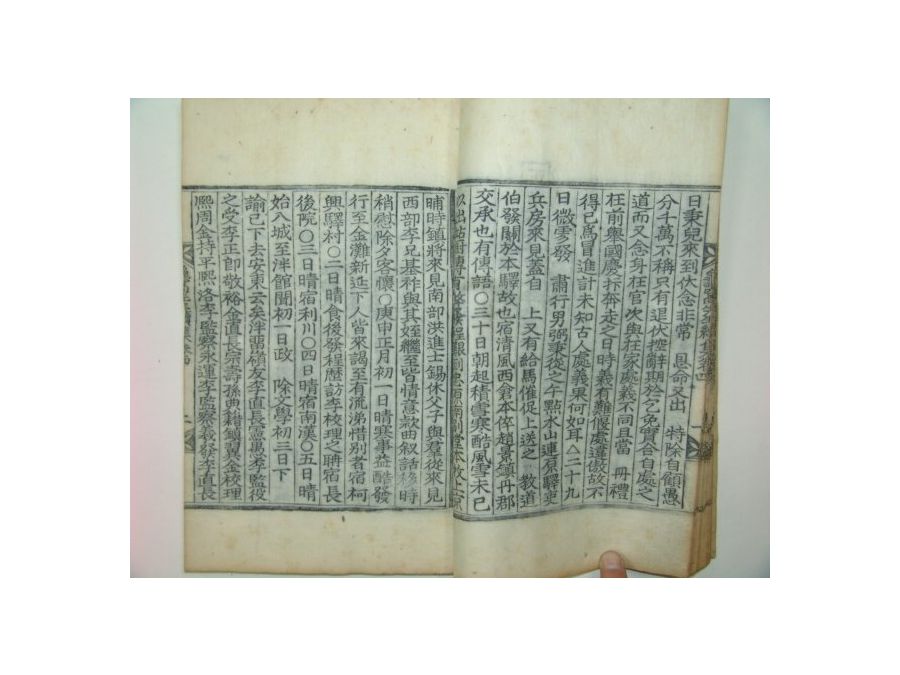 日秉兒來到伏念非常 恩命又出 特除自顧愚
分千萬不稱只有退伏控辭期於乞免實合自處之
道而又念身在官次與在家處義不同且當 冊禮
在前舉國慶抃奔走之日時義有難偃處違傲故不
得已爲冒進計未知古人處義果何如耳△二十九
日微雪發 肅行男弼秉從之午㸃水山連原驛吏
兵房來見蓋自 上又有給馬催促上送之 敎道
伯發關於本驛故也宿淸風西倉本倅趙景鎭丹郡
交承也有傳語○三十日朝起積雪寒酷風雪未已
晡時鎭將來見南部洪進士錫休父子與羣從來見
西部李兄基祚與其姪繼至皆情意款曲叙話移時
稍慰除夕客懷○庚申正月初一日晴寒事益酷發
行至金灘新延下人皆來謁至有流涕惜別者宿柯
興驛村○二日晴食後發程歷訪李校理之聃宿長
後院○三日晴宿利川○四日晴宿南漢○五日晴
始入城至泮館聞初一日政 除文學初三日下
諭已下去安東云矣泮留嶺友李直長
之受李正郞敬裕金直長宗壽孫典籍 金校理
熙周金持平熙洛李監察永運李監察義發李直長